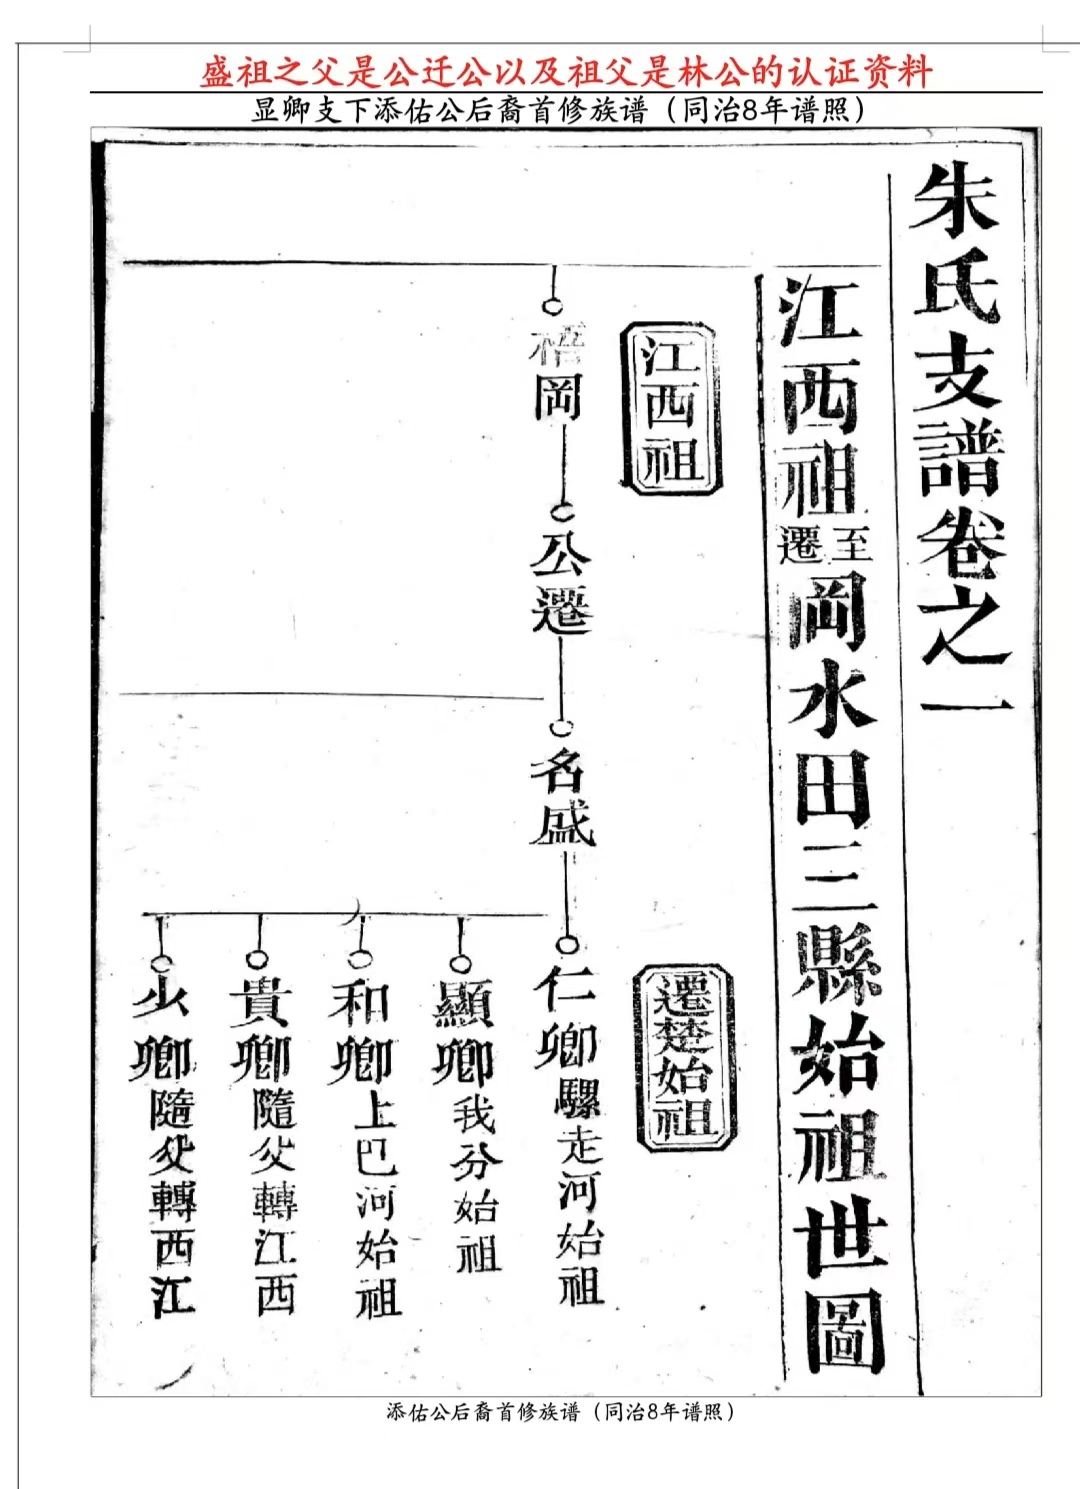 盛祖之父是公迁公以及祖父是林公的认证资料
显卿支下添佑公后裔首修族谱（同治8年谱照）
朱氏支譜卷之一
江西祖至遷岡水田三縣始祖世圖
江西祖
遷楚始祖
梧岡
公遷
名盛
仁卿騾走河始祖
顯卿我分始祖
和卿上巴河始祖
貴卿隨父轉江西
少卿隨父轉西江
添佑公后裔首修族谱（同治8年谱照）